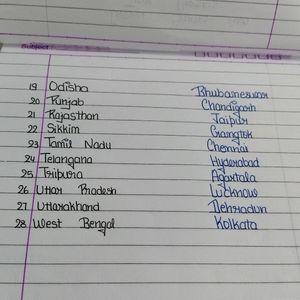 Subject
19 Odisha Bhubaneswar
20 Punjab Chandigarh
21 Rajasthan Jaipur
22 Sikkim Gangtok
23 Tamil Nadu Chennai
24 Telangana Hyderabad
25 Tripura Agartala
26 Uttar Pradesh Lucknow
27 Uttarakhand Dehradun
28 West Bengal Kolkata